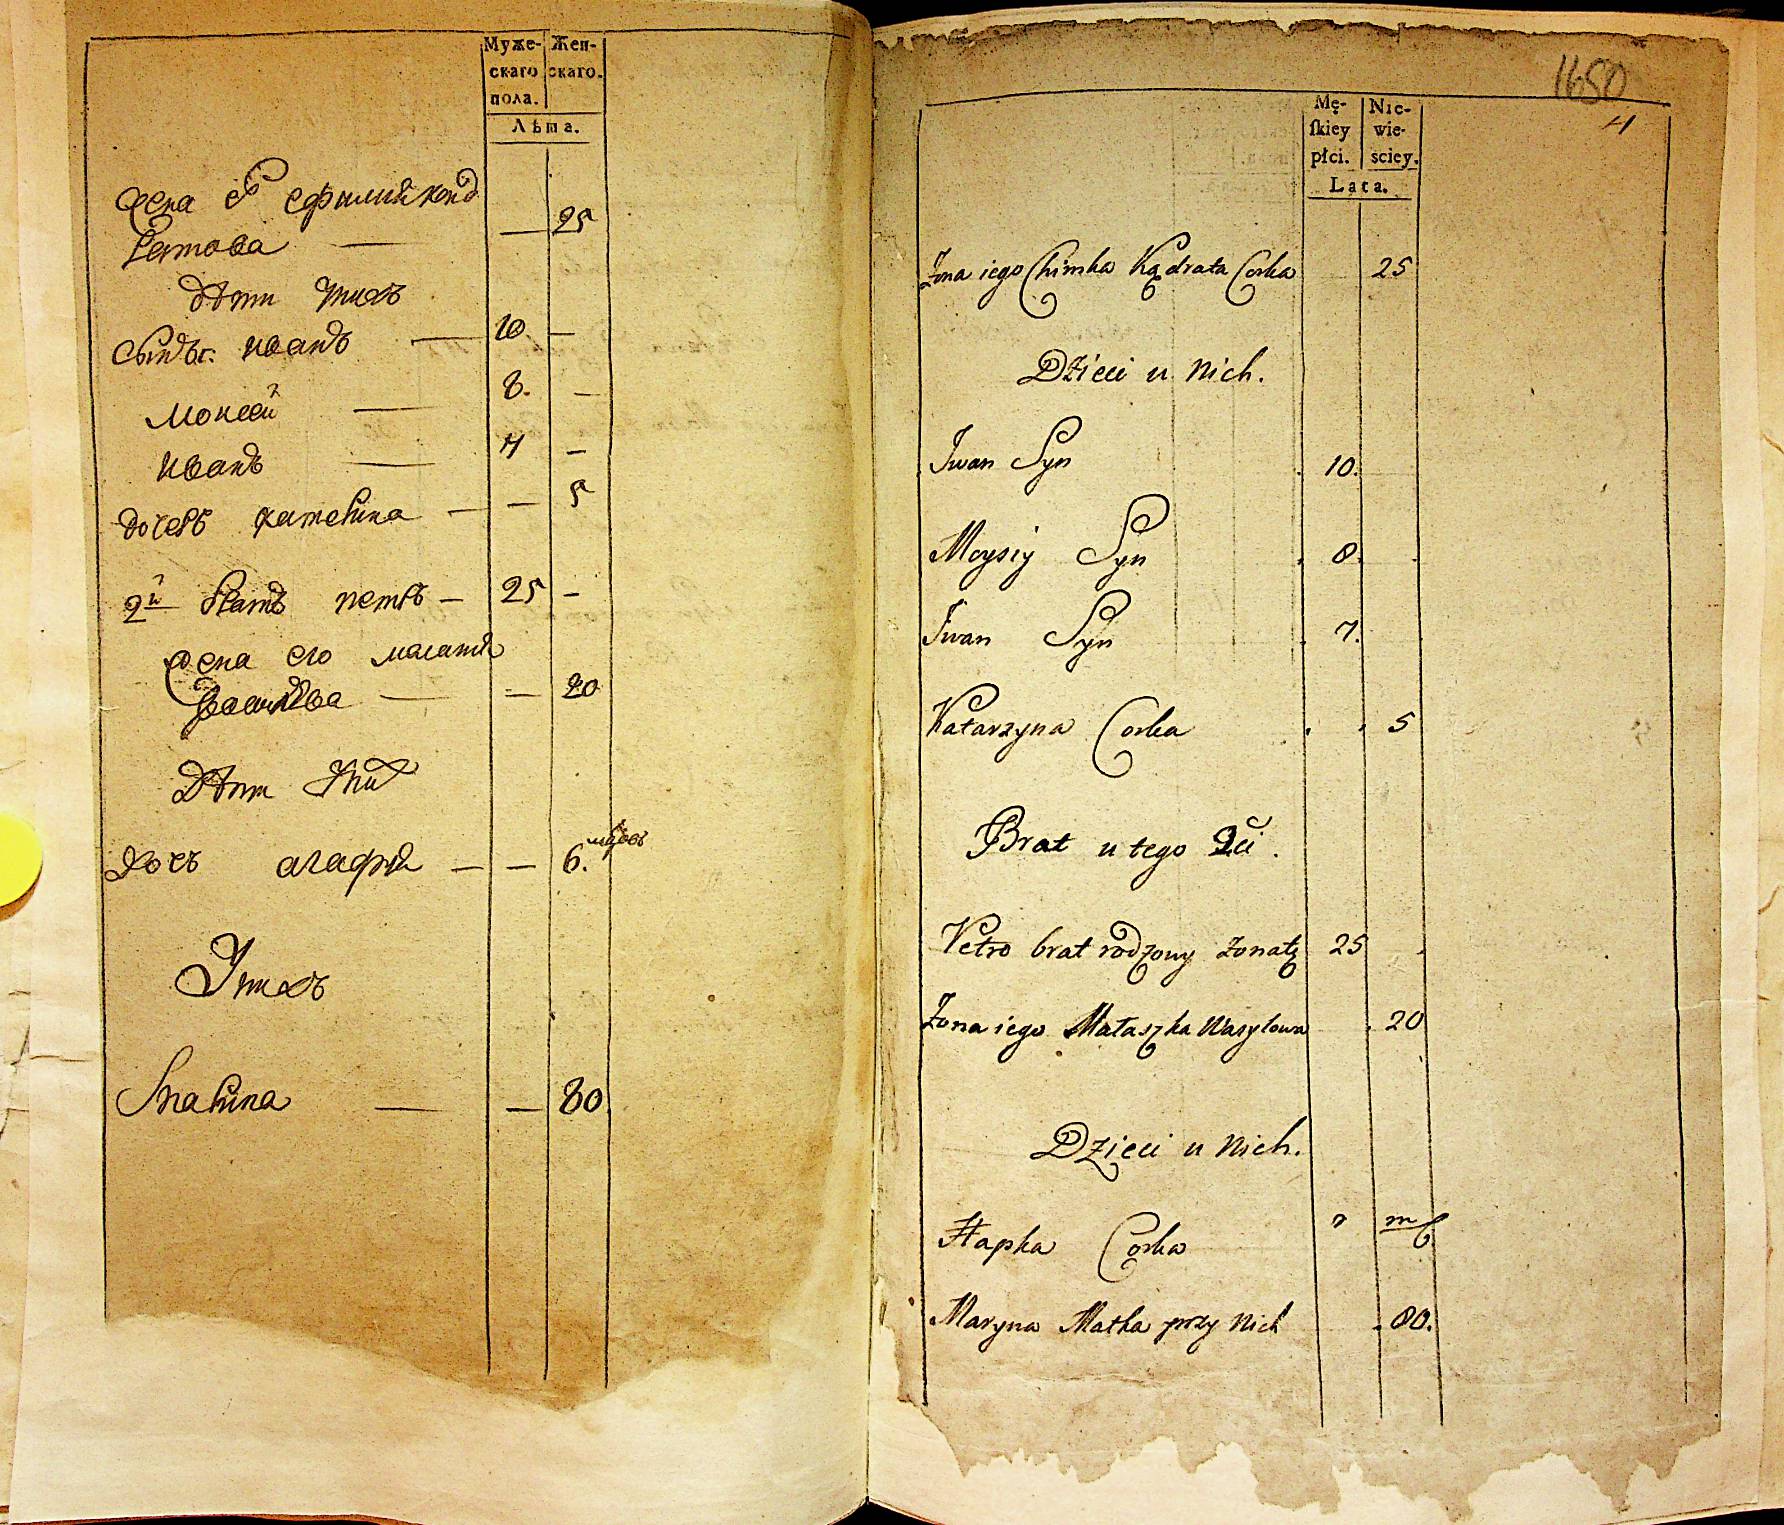 Муже-
скаго
пола.
Жен-
скаго.
Лѣта.
жена ефимия конд
ратова — — 25
дѣти ихъ
сынъ иванъ — 10 —
моисей — 8. —
иванъ — 4 —
дочерь катерина — — 5
2й братъ петръ — 25 —
жена его маланя
— — 20
Дѣти
дочь агафия — — 6.
У нихъ
Марина — — 80.
1650
4
Mę-
ſkiey
płci.
Nie-
wie-
sciey.
Lata.
Żona iego Chimka Kądrata Corka 25
Dzieci u Nich.
Jwan Syn 10.
Moysiy Syn 8.
Jwan Syn 7.
Katarzyna Corka 5
Brat u tego
Petro brat rodzony żonaty 25
Żona iego Małaszka Wasylowa 20
Dzieci u Nich.
Hapka Corka m 6.
Maryna Matka przy Nich 80.